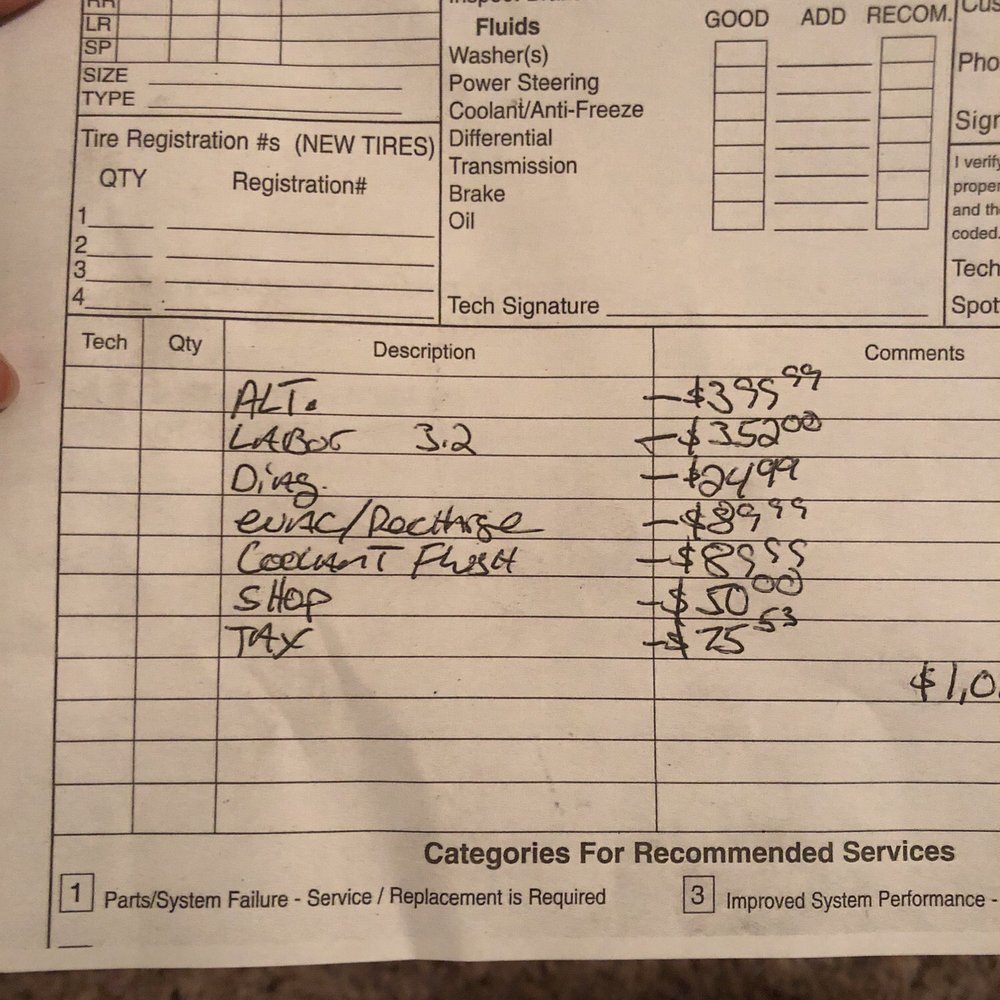 RR
LR
SP
SIZE
TYPE
Tire Registration #s (NEW TIRES)
QTY Registration#
1
2
3
4
Fluids GOOD ADD RECOM.
Washer(s)
Power Steering
Coolant/Anti-Freeze
Differential
Transmission
Brake
Oil
Tech Signature
Cus
Pho
Sign
I verify
proper
and th
coded.
Tech
Spot
Tech Qty Description Comments
ALT. -$399.99
LABOR 3.2 -$352.00
Diag. -$24.99
evac/Recharge -$89.99
COOLANT Flush -$89.99
SHOP -$50.00
TAX -$25.53
$1,0
Categories For Recommended Services
1 Parts/System Failure - Service / Replacement is Required
3 Improved System Performance -